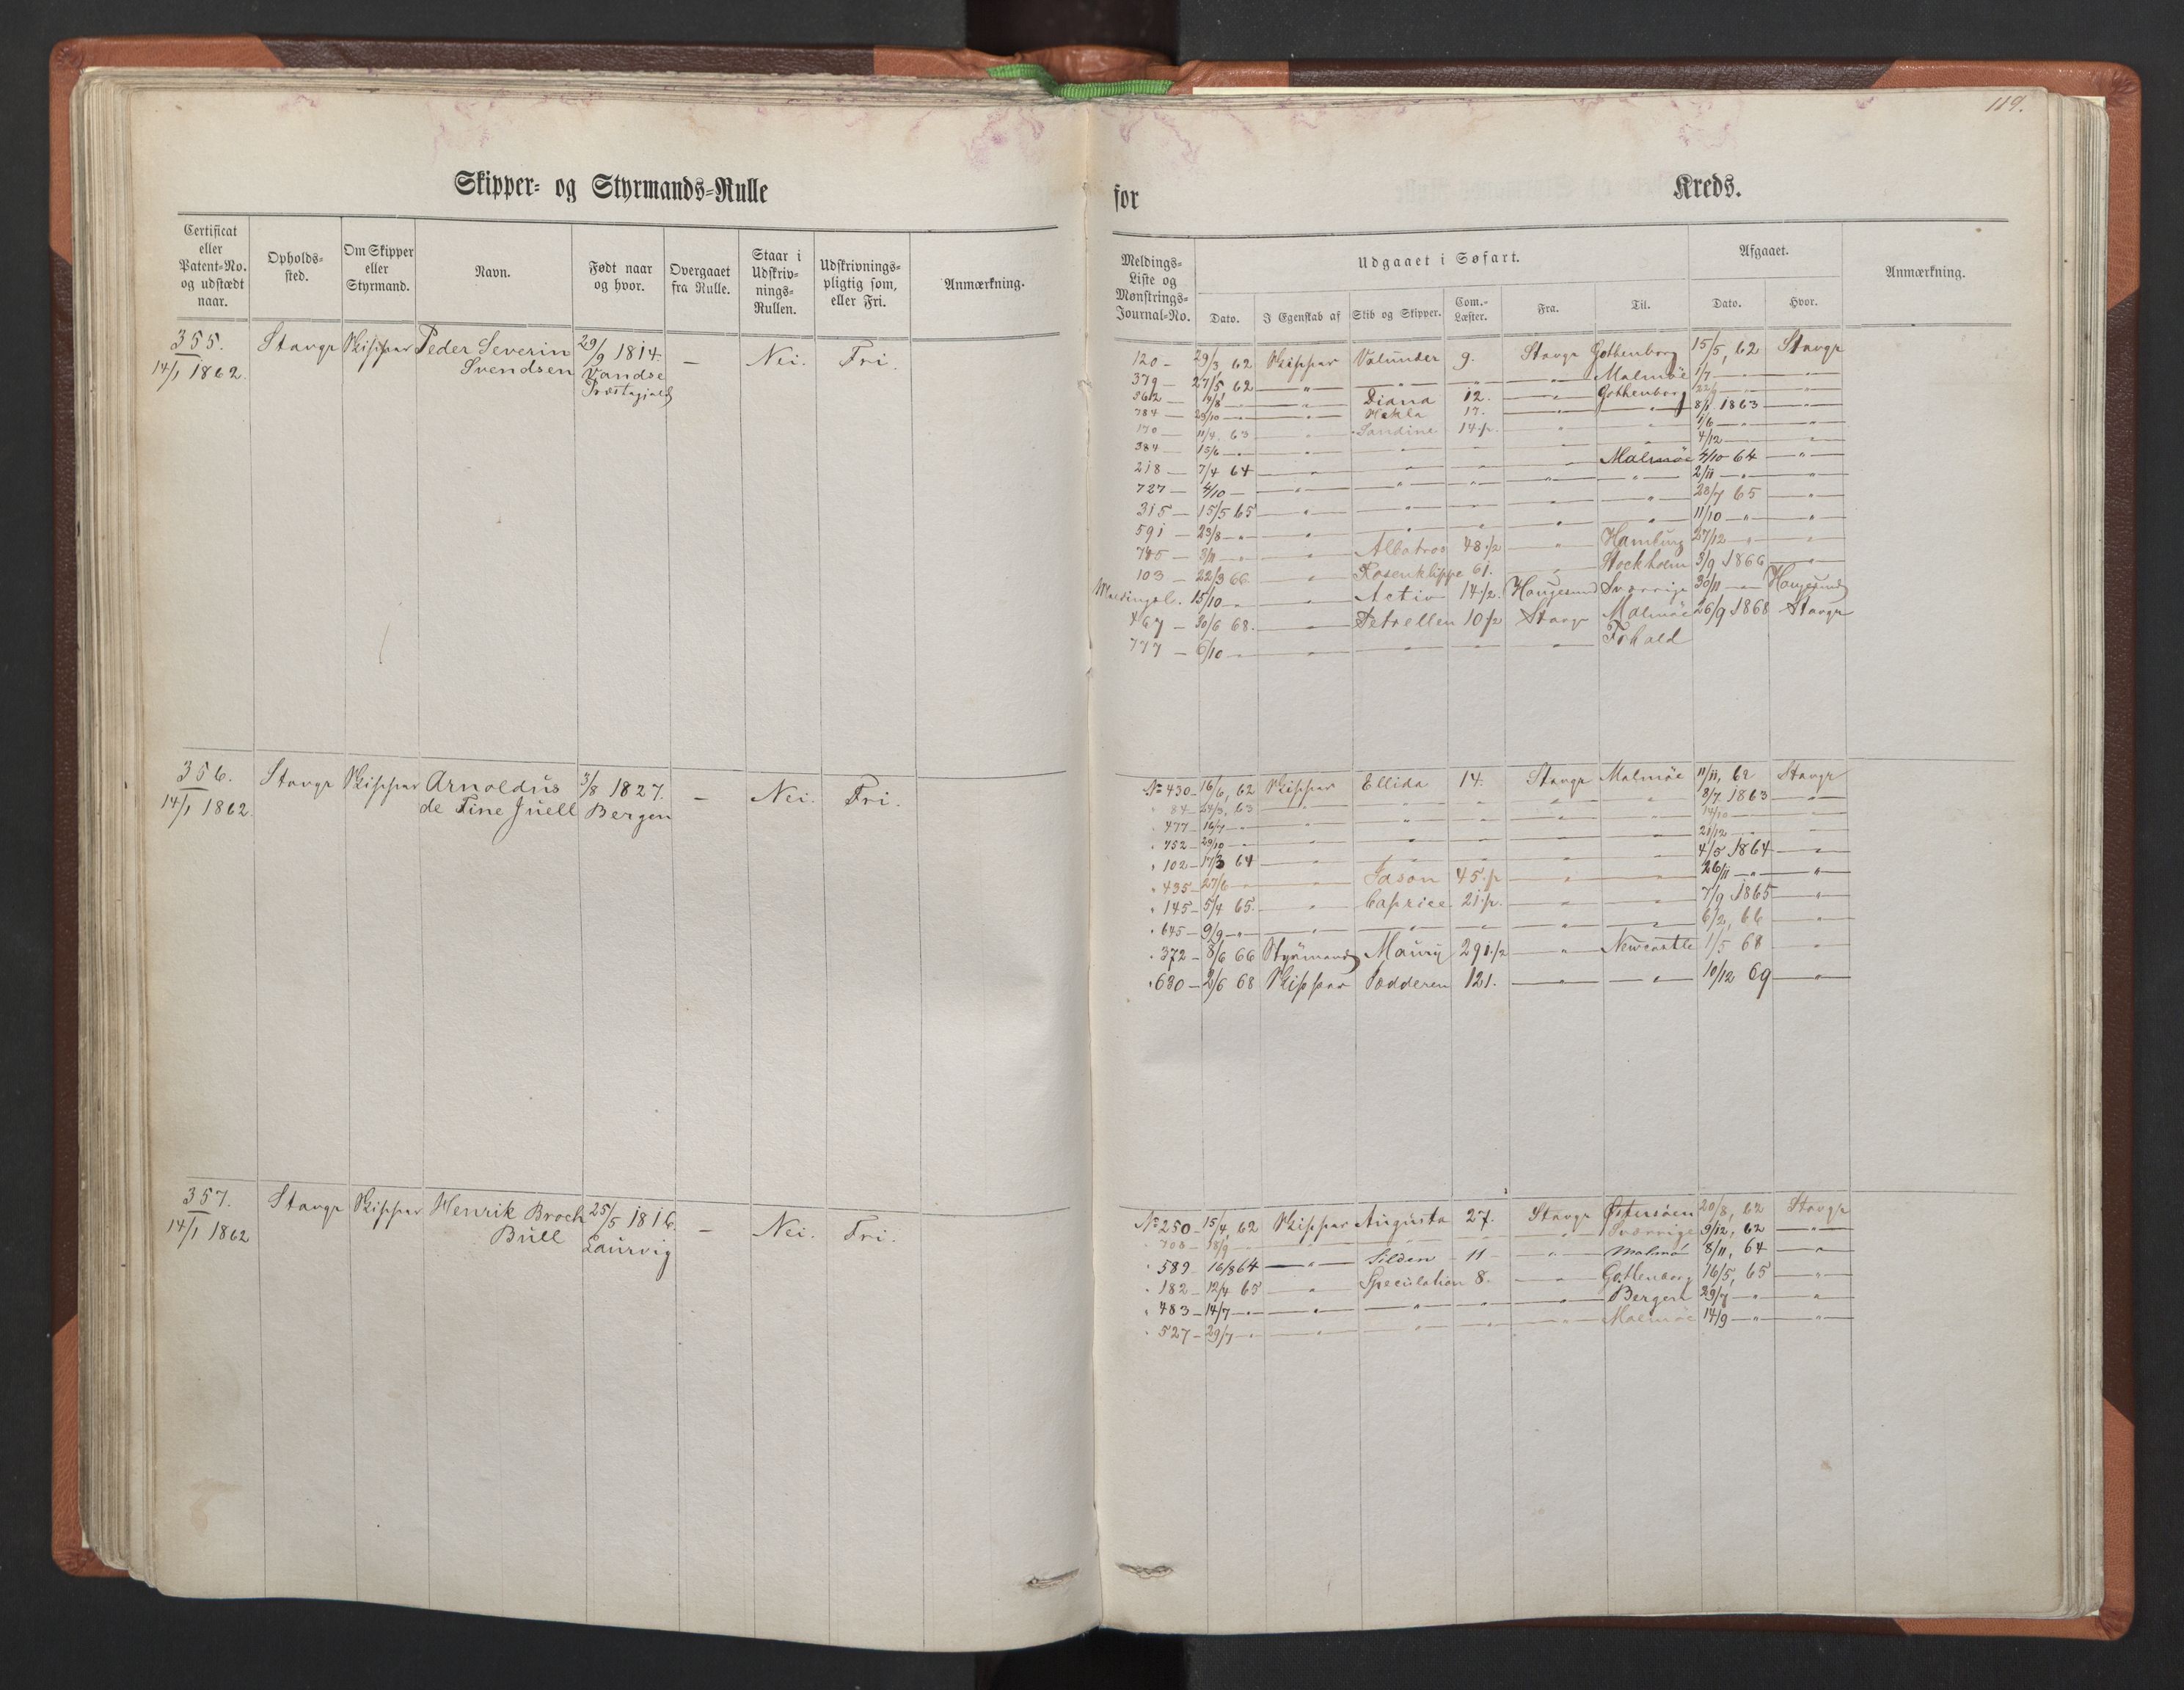 119.
Skipper- og Styrmands-Rulle
Certificat eller Patent-No. og udstædt naar.
Opholds-sted.
Om Skipper eller Styrmand.
Navn.
Født naar og hvor.
Overgaaet fra Rulle.
Staar i Udskriv-nings-Rullen.
Udskrivnings-pligtig som, eller Fri.
Anmærkning.
355. Stavgr Skipper Peder Severin 29/9 1814. — Nei. Fri.
14/1 1862. Svendsen Vandse
Præstegjeld
356. Stavgr Skipper Arnoldus 3/8 1827. — Nei. Fri.
14/1 1862. de Fine Juell Bergen
357. Stavgr Skipper Henrik Broch 25/5 1816. — Nei. Fri.
14/1 1862 Bull Laurvig
for Kreds.
Meldings-Liste og Mønstrings-Journal-No.
Udgaaet i Søfart.
Dato.
I Egenskab af
Skib og Skipper.
Com.-Læster.
Fra.
Til.
Afgaaet.
Dato.
Hvor.
Anmærkning.
120 — 29/3, 62 Skipper Valunder 9. Stavgr Gothenborg 15/5, 62 Stavgr
379 — 27/5 62 — " — — " — — " — — " — Malmöe 1/7 — " — — " —
562 — — " — Diana 12. — " — Gothenborg — " —
784 — 29/10 — " — — " — Hekla 17. — " — — " — 8/1 1863 — " —
170 — 11/4, 63 — " — Sandine 14½. " " 1/6 — " — — " —
384 — 15/6 — " — — " — — " — — " — — " — — " — 4/12 — " — — " —
218 — 7/4 64 — " — — " — — " — — " — Malmöe 4/10 64 — " —
727 — 4/10 — — " — — " — — " — — " — — " — 2/11 — " — — " —
315 — 15/5 65 — " — — " — — " — — " — — " — 28/7 65 — " —
591 — 23/8 — " — — " — — " — — " — — " — — " — 11/10 — " — — " —
745 — 3/11 — " — — " — Albatros 48½ — " — Hamburg 27/12 — " — — " —
103 — 22/3 66. — " — Rosenklippe 61. — " — Stockholm 3/9 1866 — " —
Meldingsl. 15/10 — " — — " — Activ 14½. Haugesund Sverrige 30/11 — " — Haugesund
467 — 30/6 68. — " — Petrellen 10½ Stavgr Malmöe 26/9 1868 Stavgr
777 — 6/10 — " — — " — — " — — " — — " — Frhald
No 430 — 16/6, 62 Skipper Ellida 14. Stavgr Malmöe 11/11, 62 Stavgr
" 84 — 24/3, 63 — " — — " — — " — — " — — " — 8/7 1863 — " —
" 477 — 16/7 — " — — " — — " — — " — — " — — " — 14/10 — " — — " —
" 752 — 29/10 — " — — " — — " — — " — — " — — " — 21/12 — " — — " —
" 102 — 17/3 64 — " — — " — — " — — " — — " — 4/5 1864 — " —
" 435 — 27/6 — " — — " — Jason 45½ — " — — " — 26/11 — " — — " —
" 145 — 5/4 65. — " — Caprice 21½. — " — — " — 7/9 1865 — " —
" 645 — 9/9 — " — — " — — " — — " — — " — — " — 6/2, 66 — " —
" 372 — 8/6 66 Styrmand Maury 291½ — " — Newcastle 1/5 68 — " —
" 630 — 2/6 68 Skipper Fædderen 121. — " — — " — 10/12 69 — " —
No 250 — 15/4, 62 Skipper Augusta 27. Stavgr Østersøen 20/8, 62 Stavgr
" 708 — 18/9 — " — — " — — " — — " — — " — Sverrige 9/12, 62 — " —
" 589 — 16/8 64 — " — Silden — 11 — — " — Malmö 8/11, 64 — " —
" 182 — 12/4 65 — " — Speculation 8. — " — Gothenborg 16/5, 65 — " —
" 483 — 14/7 — " — — " — — " — — " — — " — Bergen 29/7 — " — — " —
" 527 — 29/7 — " — — " — — " — — " — — " — Malmöe 14/9 — " — — " —